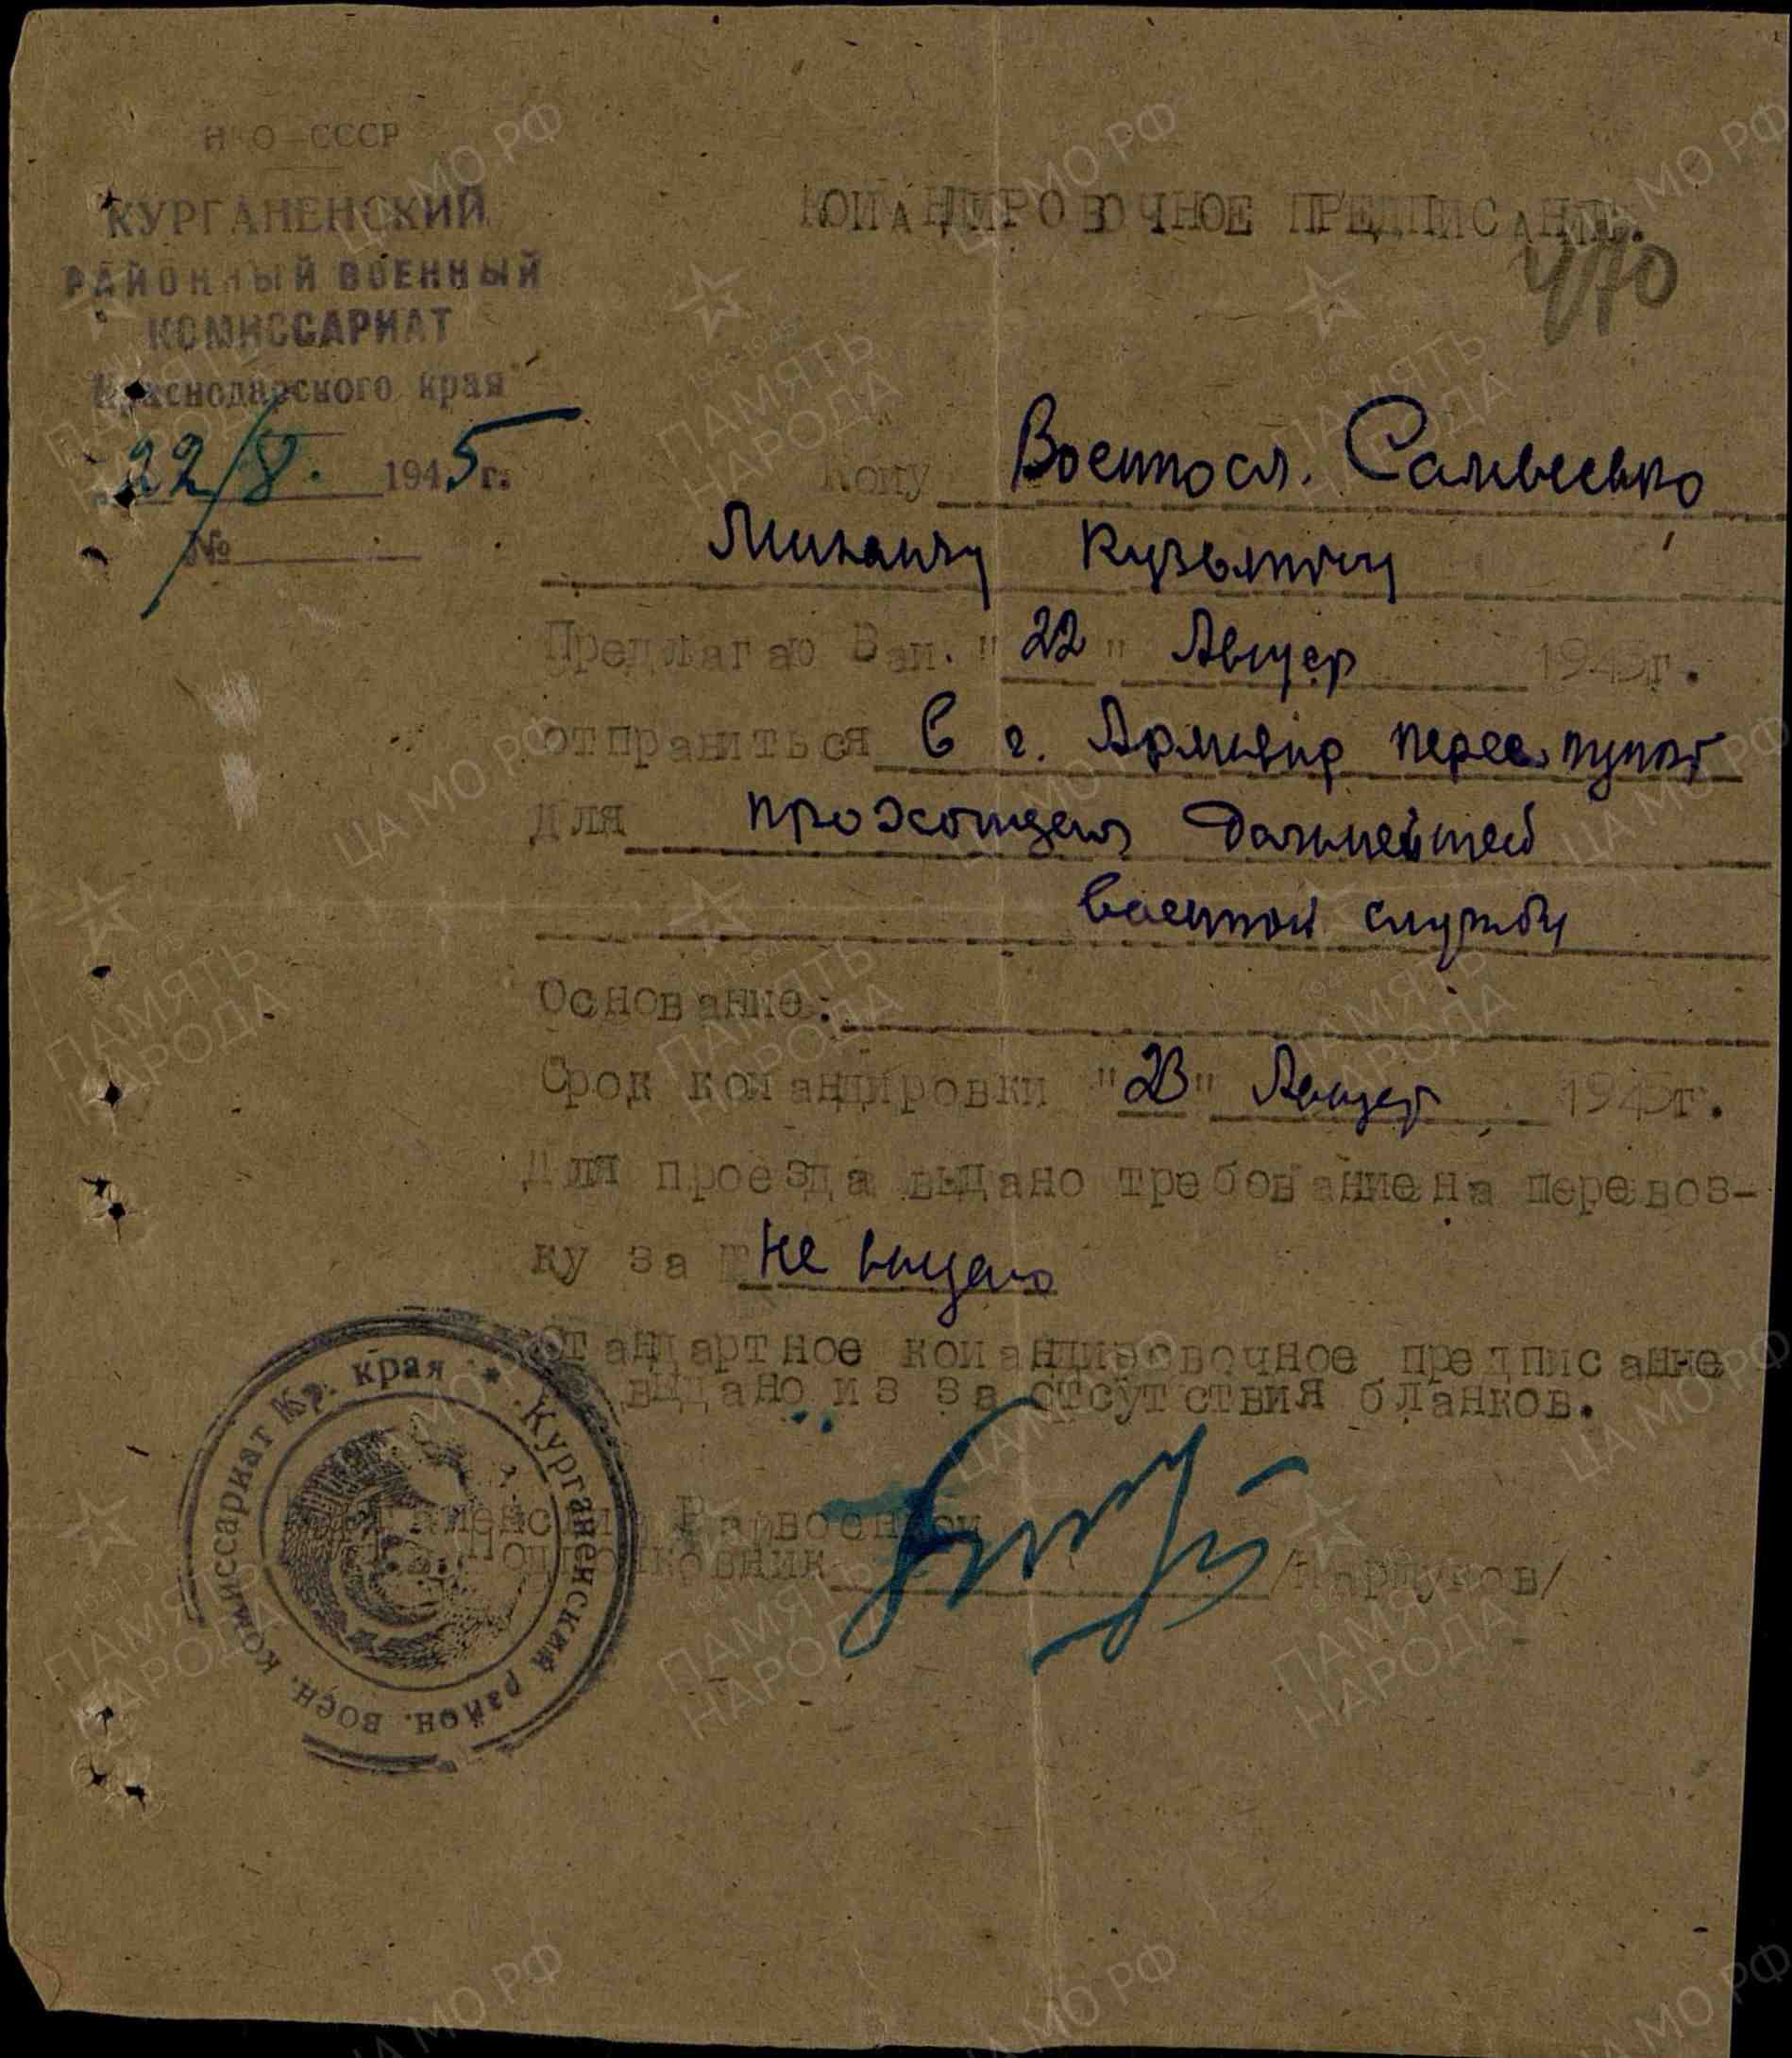 Н О СССР
КУРГАНЕНСКИЙ
РАЙОННЫЙ ВОЕННЫЙ
КОМИССАРИАТ
Краснодарского края
22/8. 1945 г.
№
КОМАНДИРОВОЧНОЕ ПРЕДПИСАНИЕ.
Кому Военносл.
Михаилу Кузьмичу
Предлагаю Вам. "22" Август 1945г.
отправиться в г. Армавир перес. пункт
для прохождения дальнейшей
военной службы
Основание:
Срок командировки "23" Август 1945г.
Для проезда выдано требование на перевоз-
ку за № Не выдано
Стандартное командировочное предписание
выдано из за отсутствия бланков.
Райвоенком
Подполковник
* Курганенский район. воен. комиссариат Кр. края
ЦА МО РФ
ПАМЯТЬ
НАРОДА